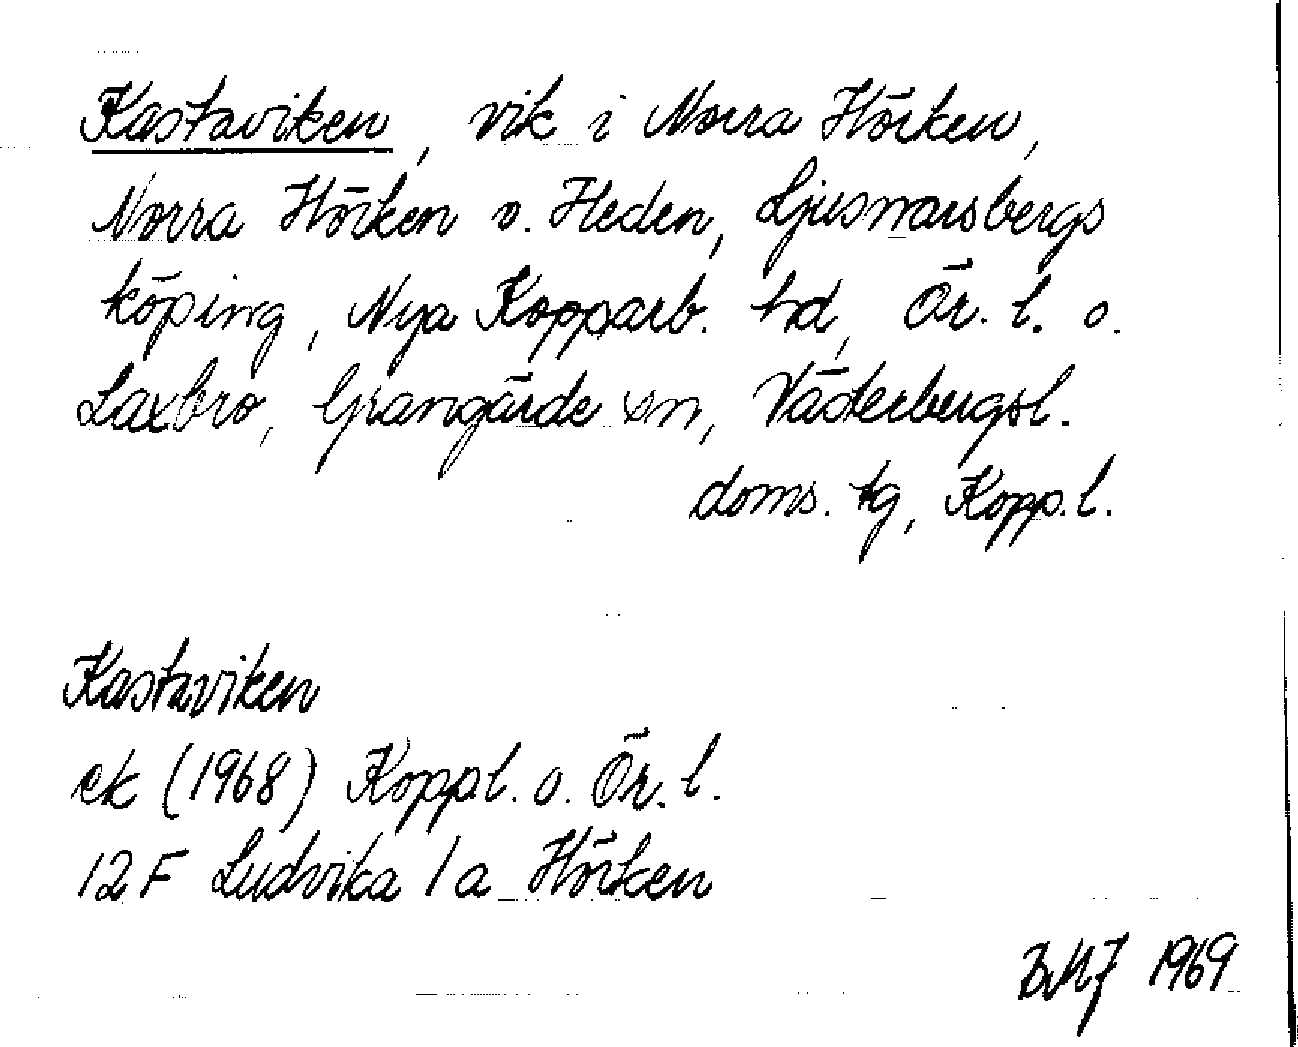 Kastaviken, vik i Norra Hörken,
Norra Hörken o. Heden, Ljusnarsbergs
köping, Nya Kopparb. hd, Ör. l. o.
Laxbro, Grangärde sn, Väderbergsl.
doms. tg, Kopp. l.
Kastaviken
ek (1968) Koppl. o. Ör. l.
12 F Ludvika 1 a Hörken
BMJ 1969